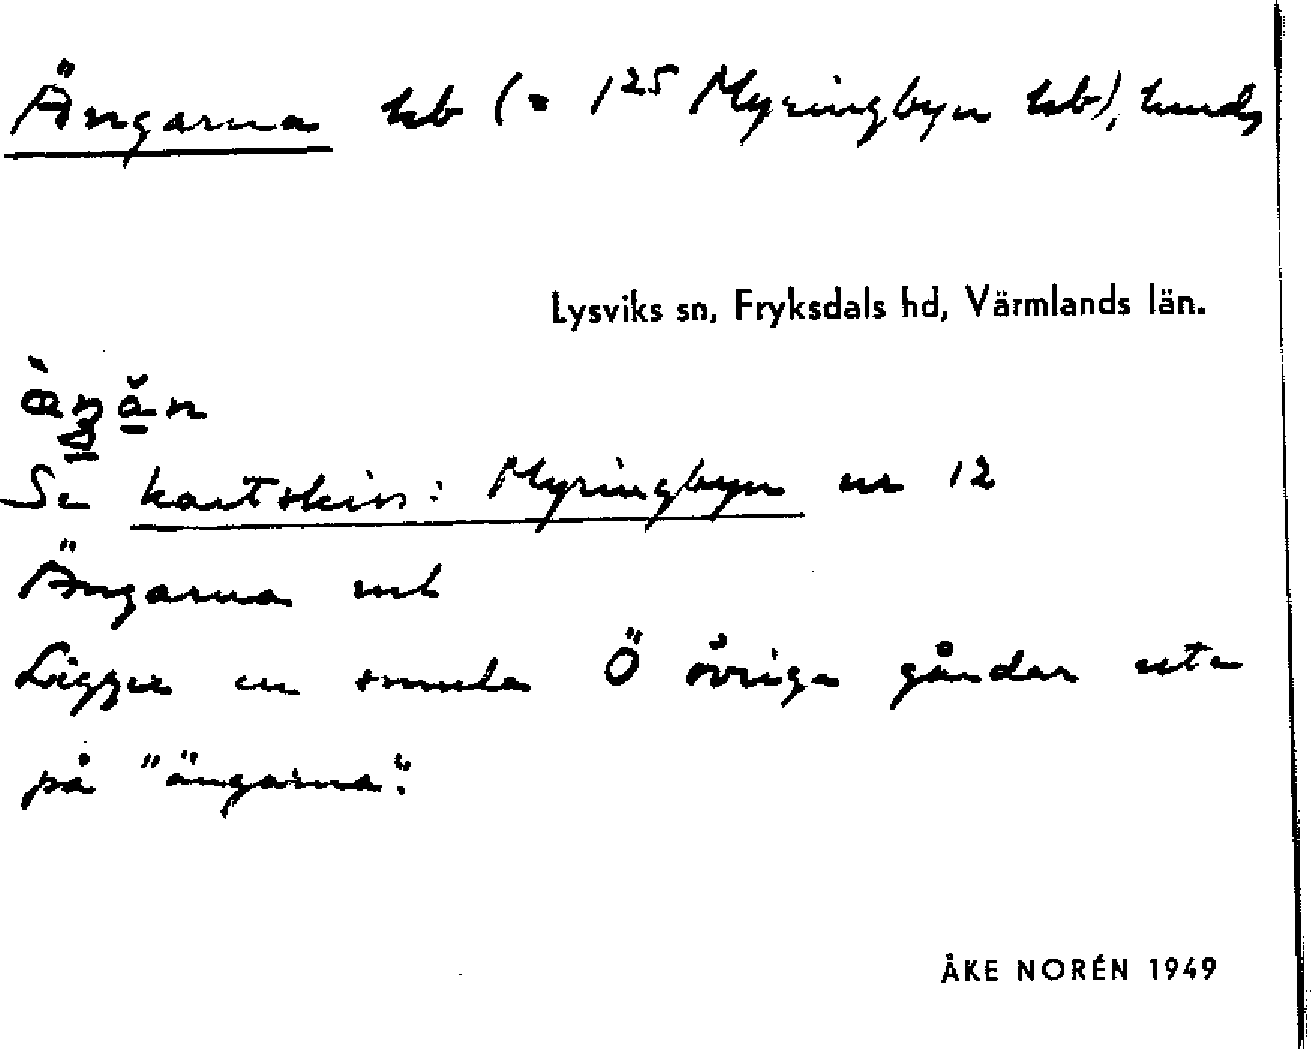 Ängarna hb (= 1²⁵ Myringbyn hb), hmds
Lysviks sn, Fryksdals hd, Värmlands län.
Se kartskiss: Myringbyn nr 12
Ängarna mtl
Ligger en smula Ö övriga gårdar ute
på "ängarna".
ÅKE NORÉN 1949